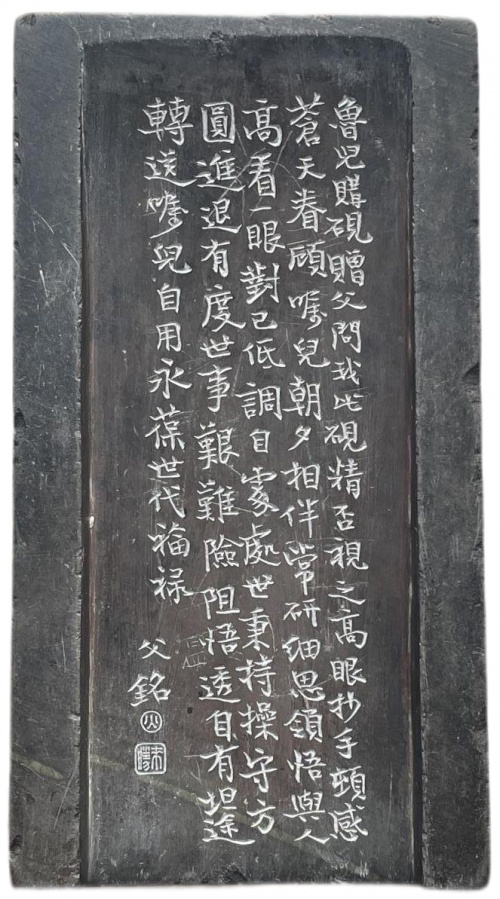 魯兒購硯贈父問我此硯精否視之高眼抄手頓感
蒼天眷顧囑兒朝夕相伴常研細思領悟與人
高看一眼對己低調自處處世秉持操守方
圓進退有度世事艱難險阻悟透自有坦途
轉送囑兒自用永葆世代福祿
父銘